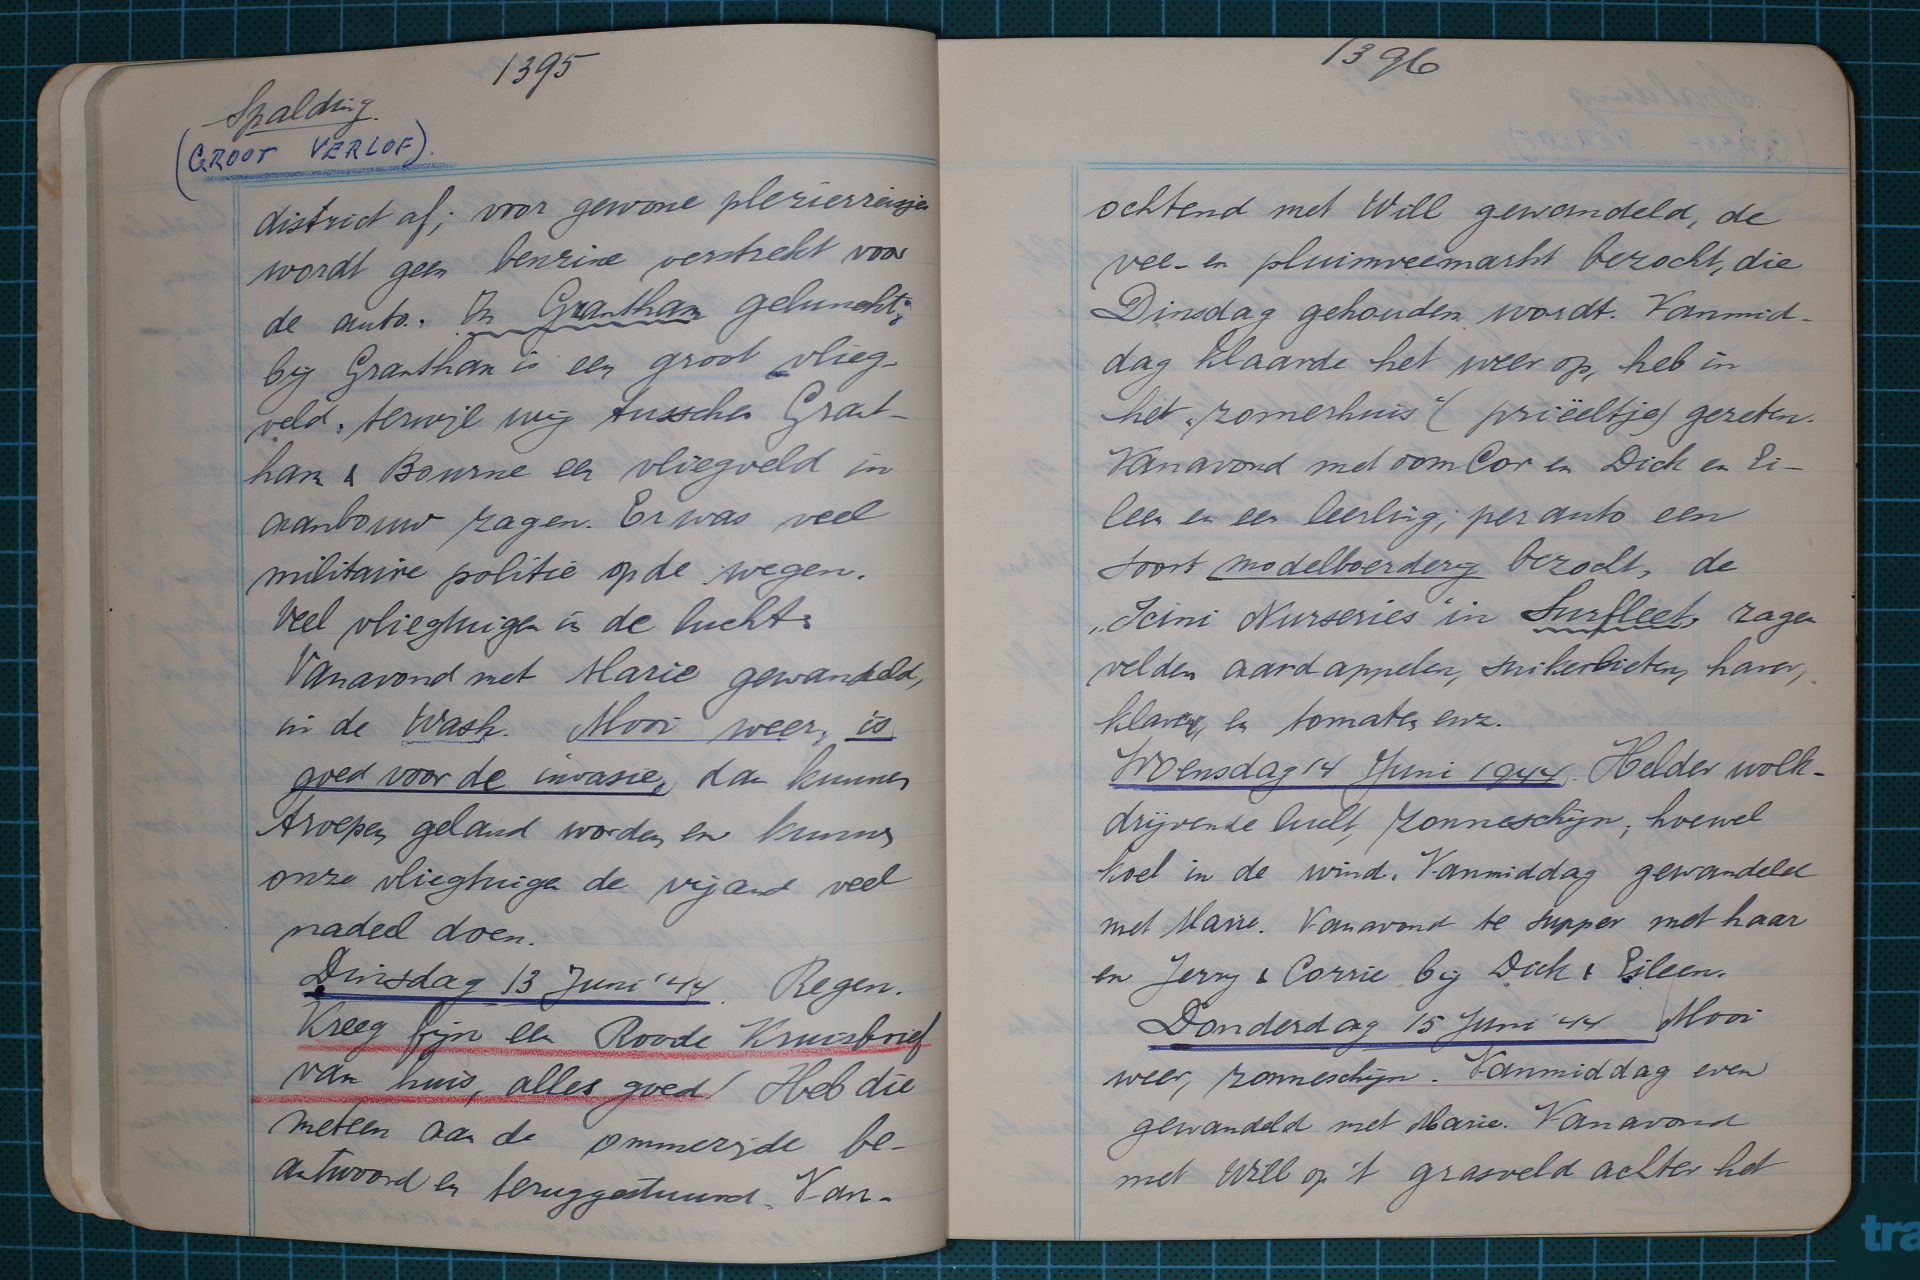 1395
Spalding.
(GROOT VERLOF).
district af; voor gewone plezierreisjes
wordt geen benzine verstrekt voor
de auto. In Grantham geluncht;
bij Grantham is een groot vlieg-
veld, terwijl wij tusschen Grant-
ham & Bourne een vliegveld in
aanbouw zagen. Er was veel
militaire politie op de wegen.
Veel vliegtuigen in de lucht.
Vanavond met Marie gewandeld,
in de Wash. Mooi weer, is
goed voor de invasie, dan kunnen
troepen geland worden en kunnen
onze vliegtuigen de vijand veel
nadeel doen.
Dinsdag 13 Juni '44. Regen.
Kreeg fijn een Roode Kruisbrief
van huis, alles goed! Heb die
meteen aan de ommezijde be-
antwoord en teruggestuurd. Van-
1396
ochtend met Will gewandeld, de
vee- en pluimveemarkt bezocht, die
Dinsdag gehouden wordt. Vanmid-
dag klaarde het weer op, heb in
het „zomerhuis" (priëeltje) gezeten.
Vanavond met oom Cor en Dick en Ei-
leen en een leerling, per auto een
soort modelboerderij bezocht, de
„Icini Nurseries" in Surfleet, zagen
velden aardappelen, suikerbieten, haver,
klaver, en tomaten enz.
Woensdag 14 Juni 1944. Helder wolk-
drijvende lucht, zonneschijn, hoewel
koel in de wind. Vanmiddag gewandeld
met Marie. Vanavond te supper met haar
en Jerry & Corrie bij Dick & Eileen.
Donderdag 15 Juni '44 Mooi
weer, zonneschijn. Vanmiddag even
gewandeld met Marie. Vanavond
met Will op 't grasveld achter het
tra